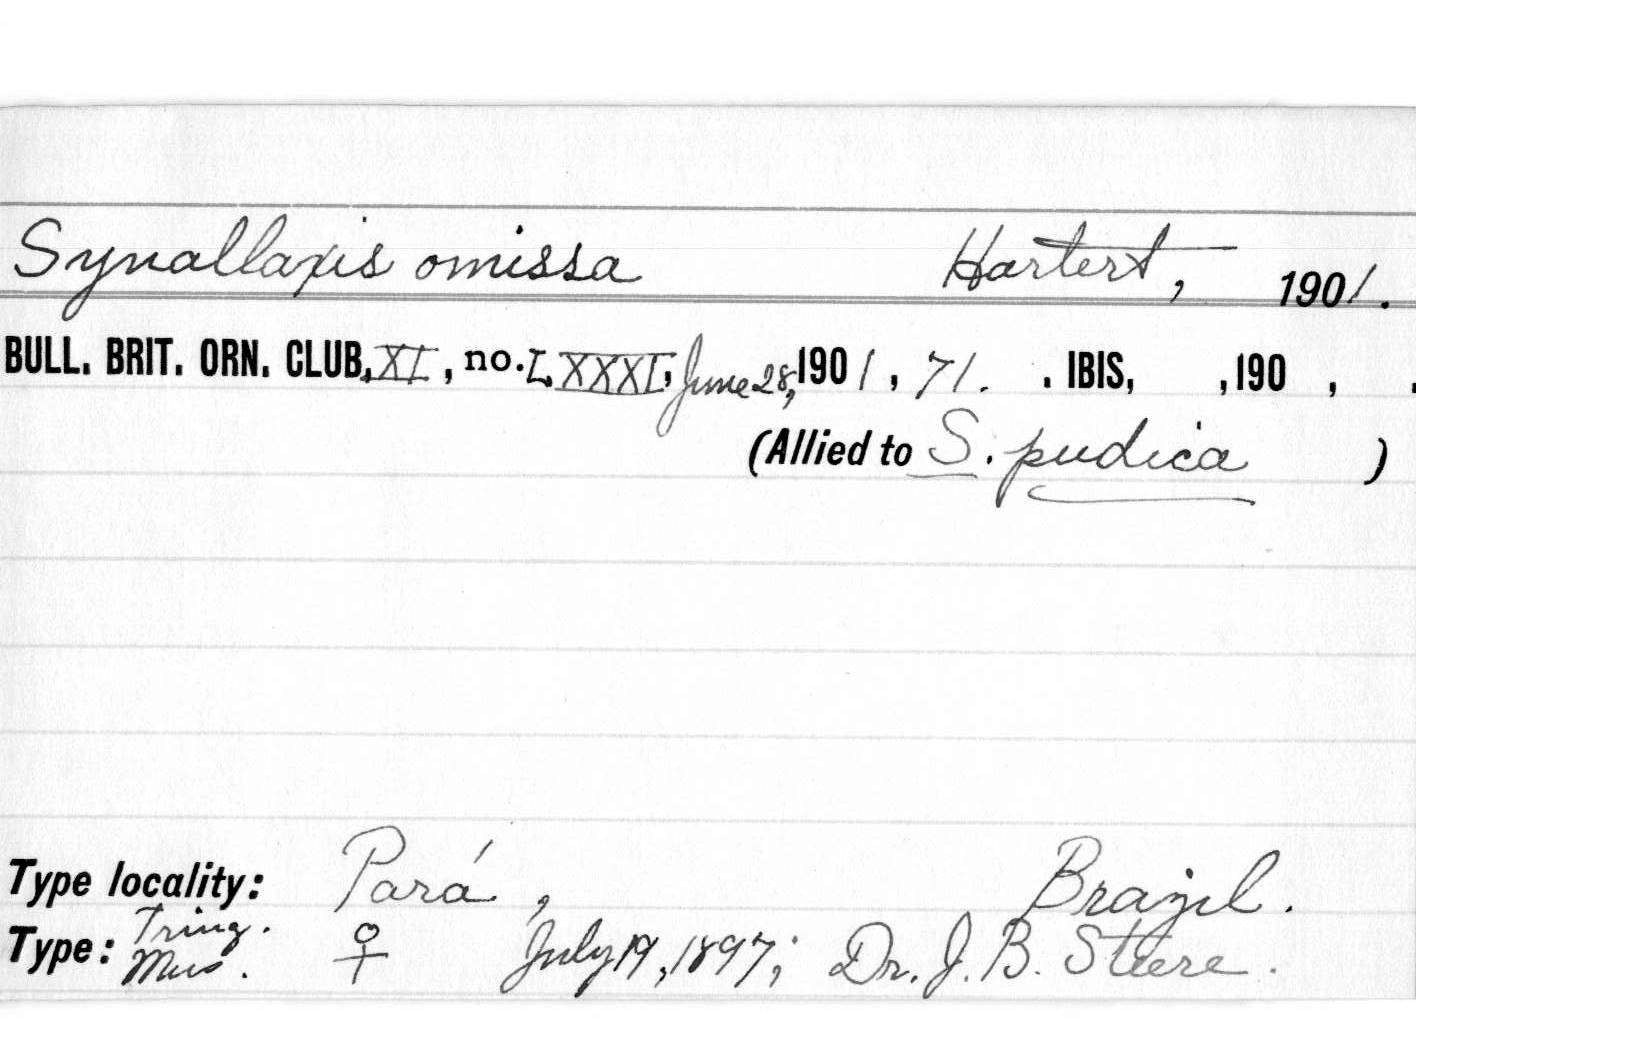 Synallaxis omissa Hartert, 1901.
BULL. BRIT. ORN. CLUB, XI, no. LXXXI, June 28, 1901, 71. . IBIS, ,190 , .
(Allied to S. pudica )
Type locality: Pará, Brazil.
Type: Tring. Mus. ♀ July 19, 1897; Dr. J. B. Steere.